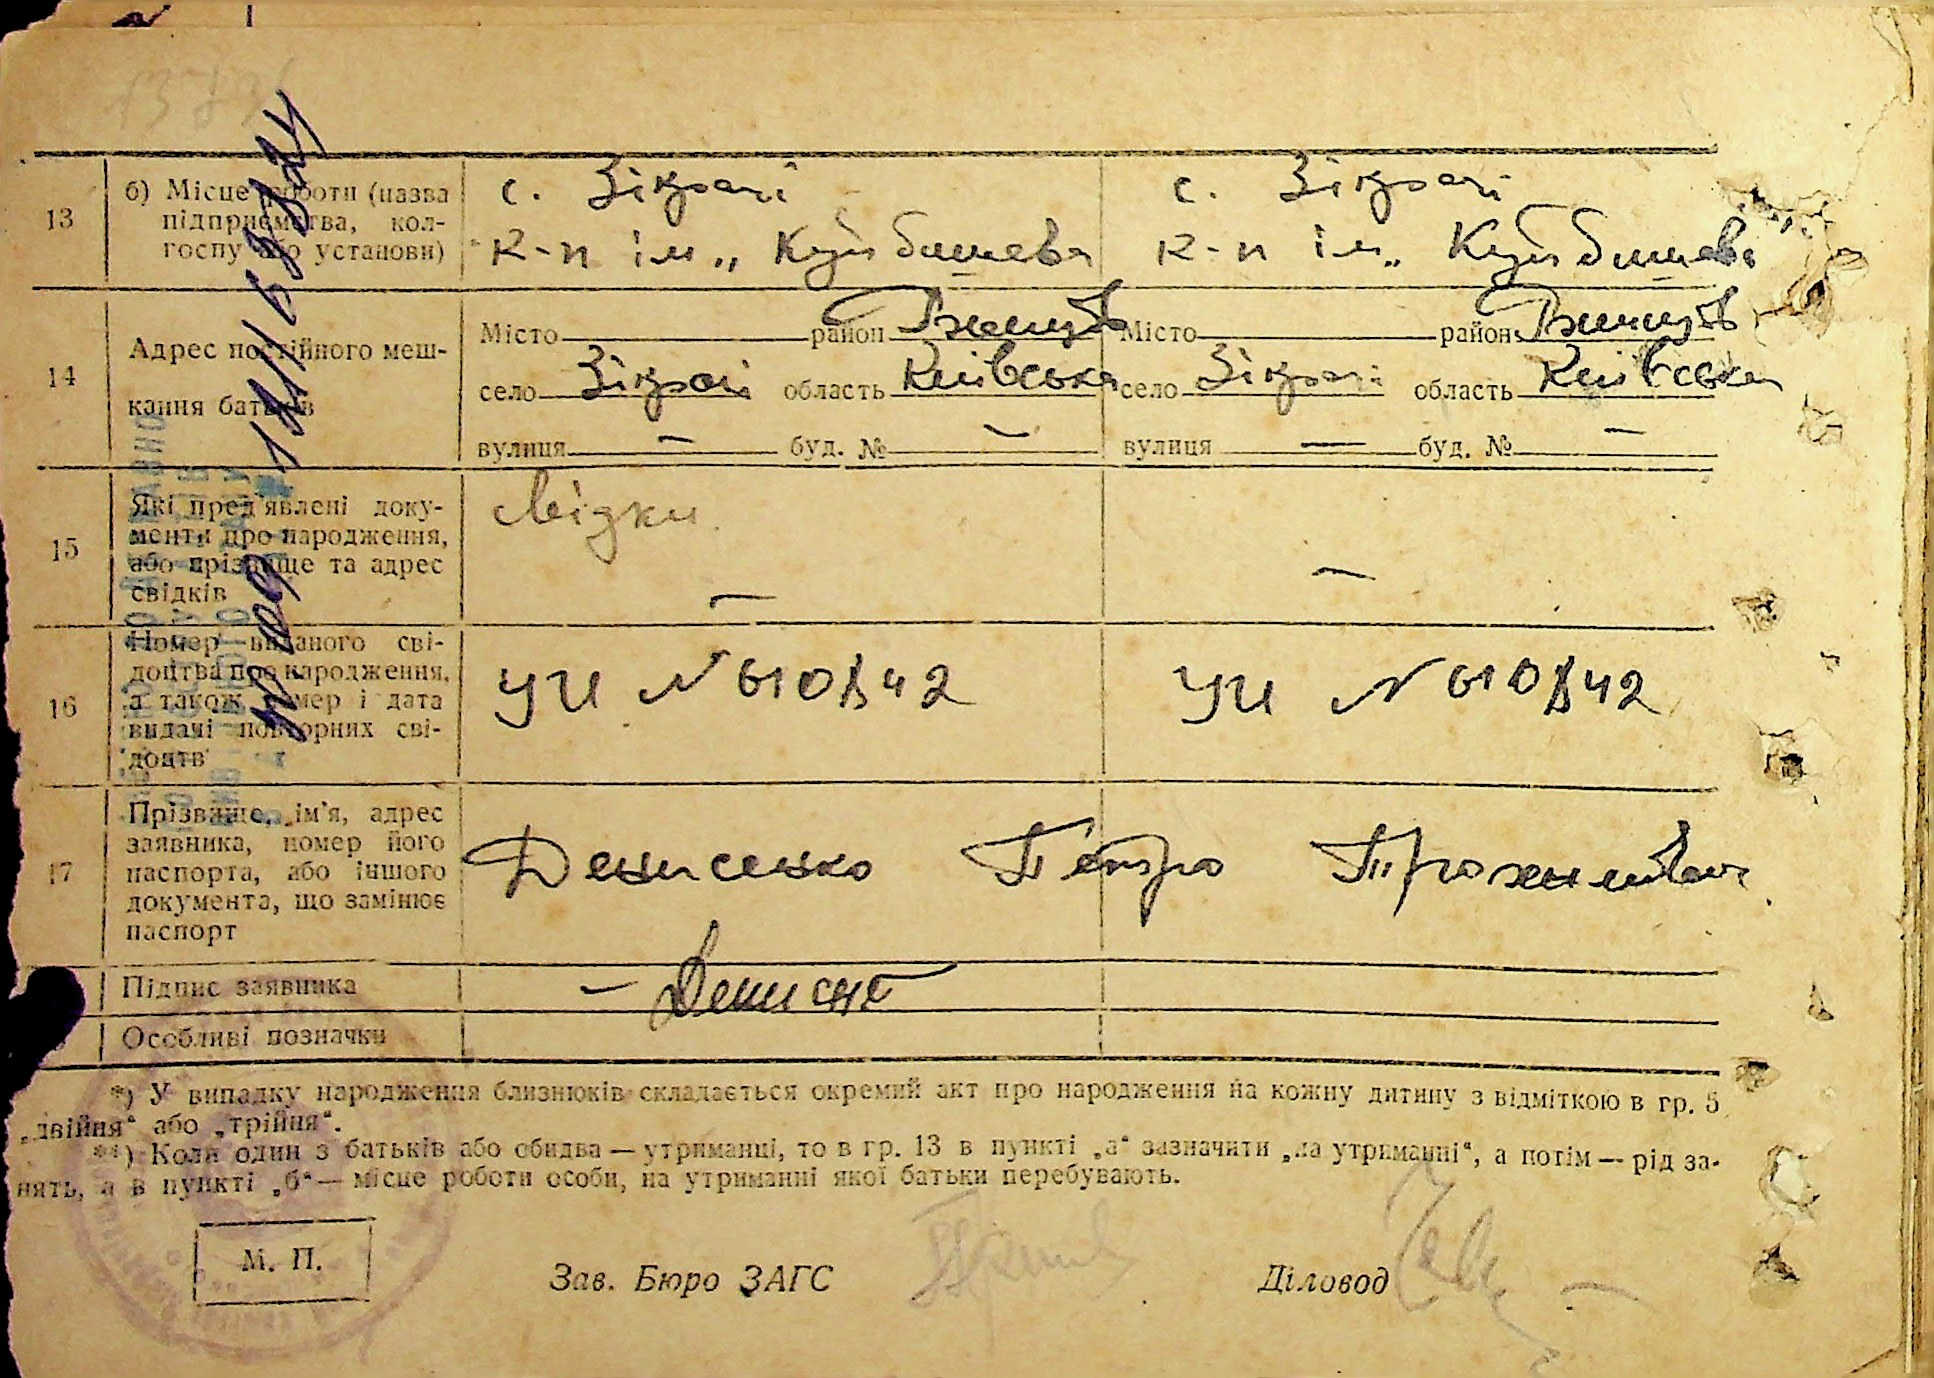 13
б) Місце роботи (назва
підприємства, кол-
госпу або установи)
с. Зікрачі
к-п ім „ Куйбишева
с. Зікрачі
к-п ім „ Куйбишева
14
Адрес постійного меш-
кання батьків
Місто район Ржищів
село Зікрачі область Київська
вулиця — буд. № —
Місто район Ржищів
село Зікрачі область Київська
вулиця — буд. № —
15
Які пред'явлені доку-
менти про народження,
або прізвище та адрес
свідків
свідки
—
—
16
Номер виданого сві-
доцтва про народження,
а також номер і дата
видачі повторних сві-
доцтв
УИ №
УИ №
17
Прізвище, ім'я, адрес
заявника, номер його
паспорта, або іншого
документа, що замінює
паспорт
Денисенко Петро
Підпис заявника
Особливі позначки
*) У випадку народження близнюків складається окремий акт про народження на кожну дитину з відміткою в гр. 5
„двійня“ або „трійня“.
**) Коли один з батьків або обидва — утриманці, то в гр. 13 в пункті „а“ зазначити „на утриманні“, а потім — рід за-
нять, а в пункті „б“ — місце роботи особи, на утриманні якої батьки перебувають.
М. П.
Зав. Бюро ЗАГС
Діловод